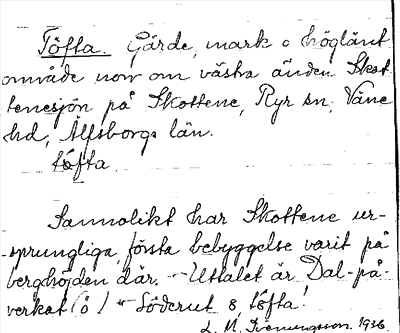 Töfta. Gärde, mark o högländt
område norr om västra änden Skot-
tenesjön på Skottene, Ryr sn, Väne
hd, Älfsborgs län.
tófta.
Sannolikt har Skottene ur-
sprungliga första bebyggelse varit på
berghöjden där. - Uttalet är Dal-på-
verkat (ò) - Söderut 8, tófta!
L. M. Svenungsson 1936.